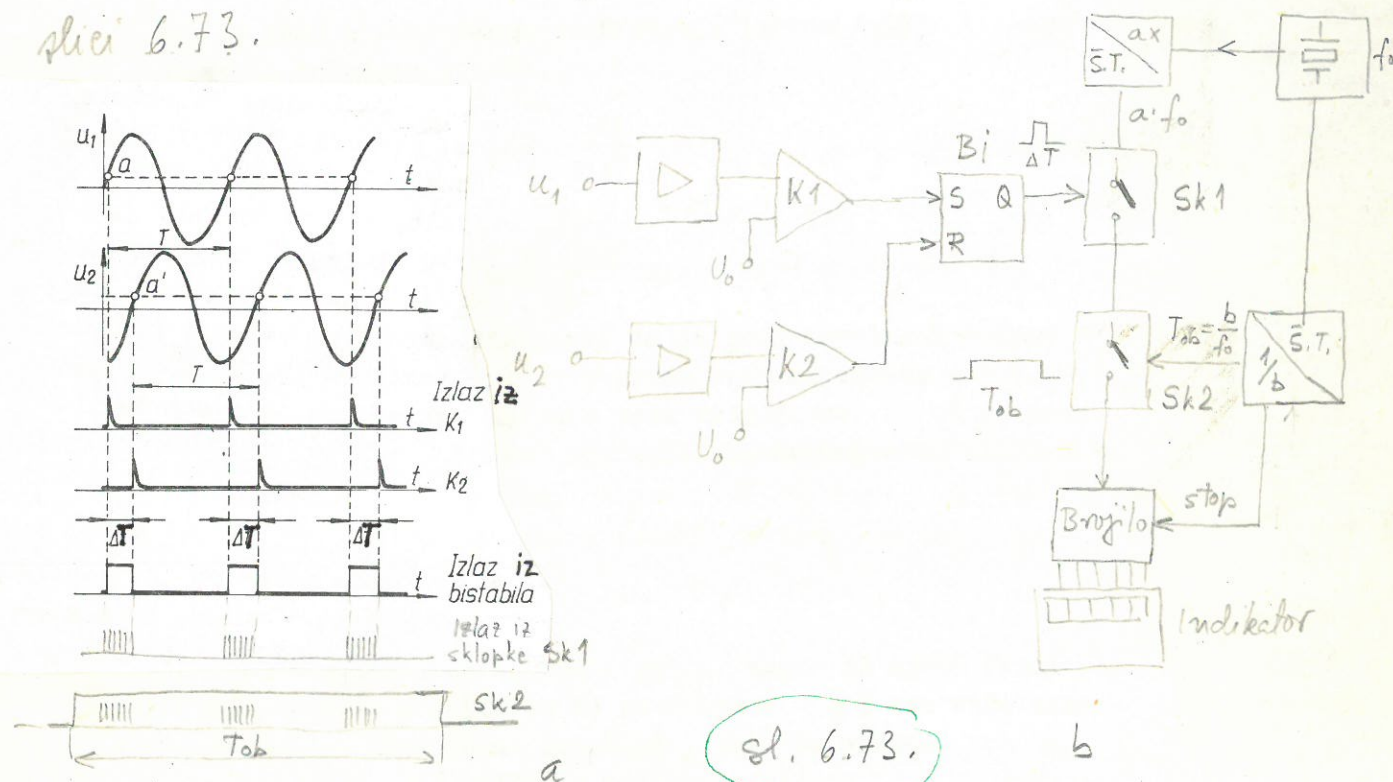 slici 6.73.
u1
a
t
T
u2
a'
t
T
Izlaz iz
t K1
t K2
ΔT ΔT ΔT
Izlaz iz
t bistabila
Izlaz iz
sklopke Sk1
Sk2
Tob
a
u1
K1
U0
u2
K2
U0
Bi
ΔT
S Q
R
ax
S.T.
f0
a·f0
Sk1
Tob
Tob = b/f0
Sk2
S.T.
1/b
stop
Brojilo
Indikator
sl. 6.73.
b